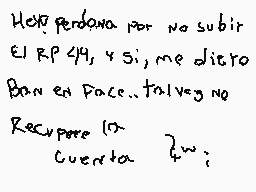 Hey perdona por no subir
El RP 44, y si, me diero
Ban en Face.. tal vez no
Recupere la
cuenta :